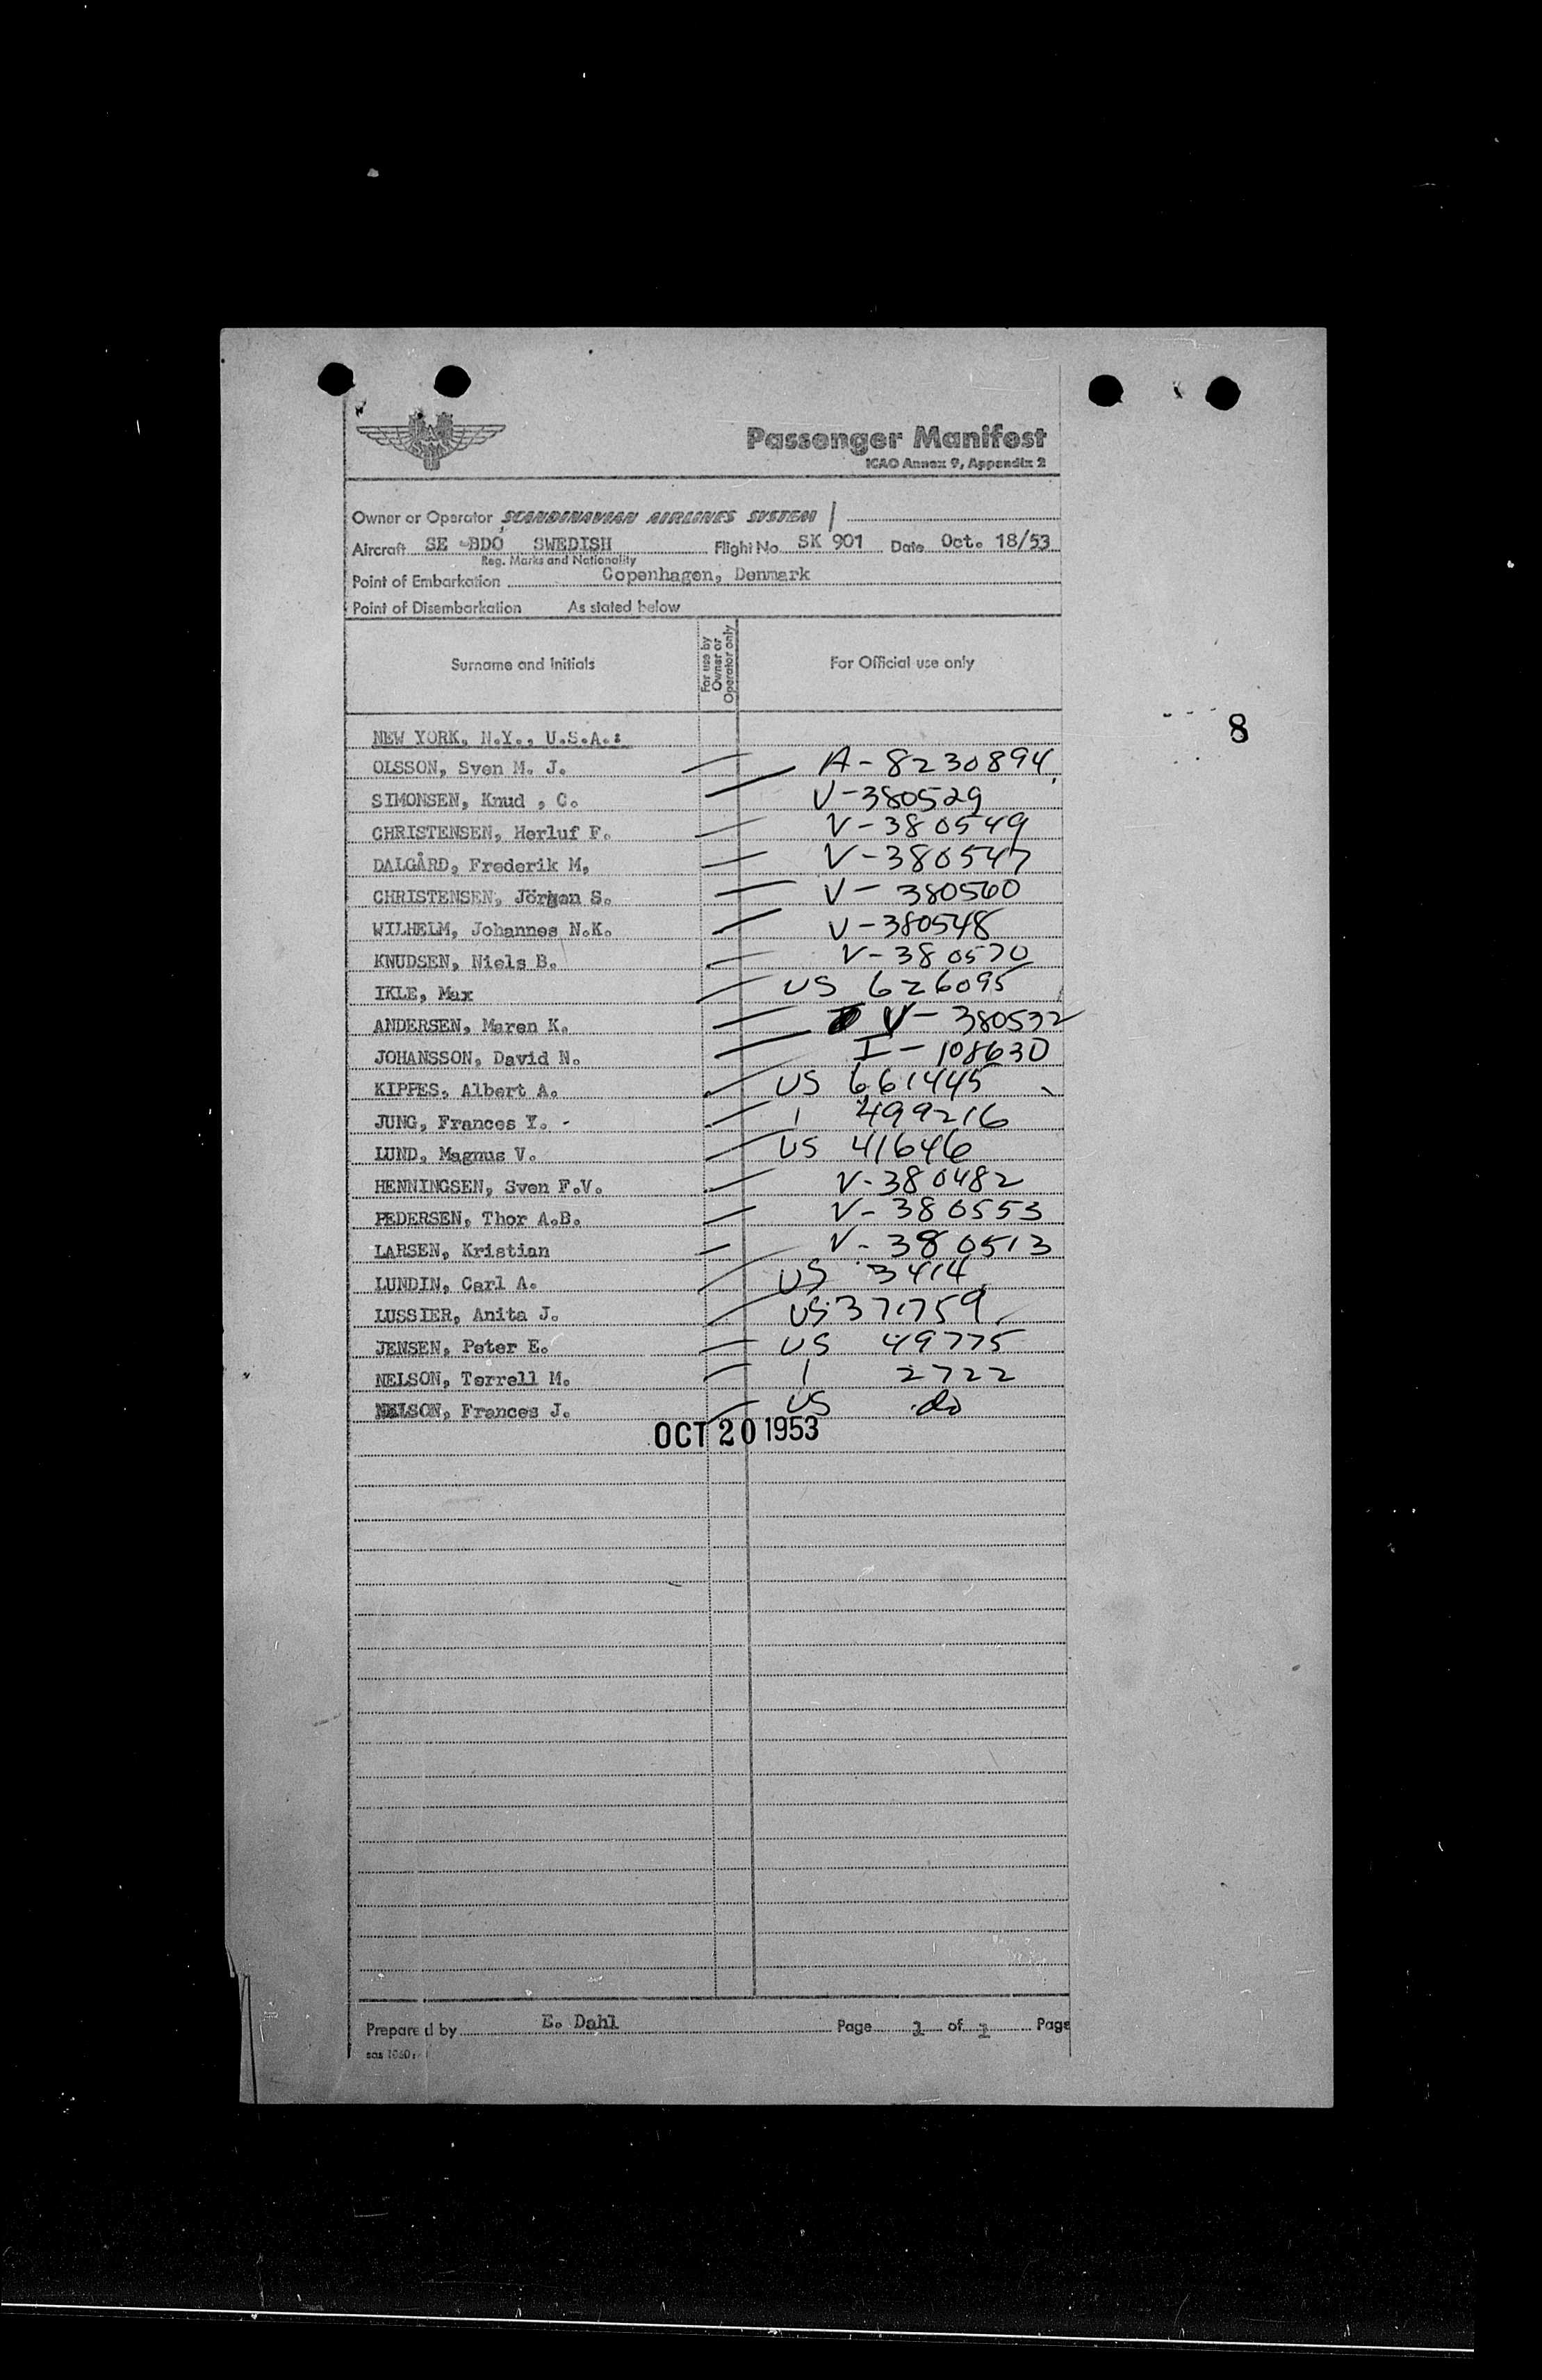 Passenger Manifest
ICAO Annex 9, Appendix 2
Owner or Operator SCANDINAVIAN AIRLINES SYSTEM
Aircraft SE -BDO SWEDISH Flight No. SK 901 Date Oct. 18/53
Reg. Marks and Nationality
Point of Embarkation Copenhagen, Denmark
Point of Disembarkation As stated below
Surname and Initials For use by Owner or Operator only For Official use only
8
NEW YORK, N.Y., U.S.A.:
OLSSON, Sven M. J. A-8230894
SIMONSEN, Knud , C. V-380529
CHRISTENSEN, Herluf F. V-380549
DALGÅRD, Frederik M, V-380547
CHRISTENSEN, Jörgen S. V-380560
WILHELM, Johannes N.K. V-380548
KNUDSEN, Niels B. V-380570
IKLE, Max US 626095
ANDERSEN, Maren K. V-380532
JOHANSSON, David N. I-108630
KIPPES, Albert A. US 661445
JUNG, Frances Y. - 1 499216
LUND, Magnus V. US 41646
HENNINGSEN, Sven F.V. V-380482
PEDERSEN, Thor A.B. V-380553
LARSEN, Kristian V-380513
LUNDIN, Carl A. US 3414
LUSSIER, Anita J. US 371759
JENSEN, Peter E. US 49775
NELSON, Terrell M. 1 2722
NELSON, Frances J. US do
OCT 20 1953
Prepared by E. Dahl Page 1 of 1 Page
sas 1060